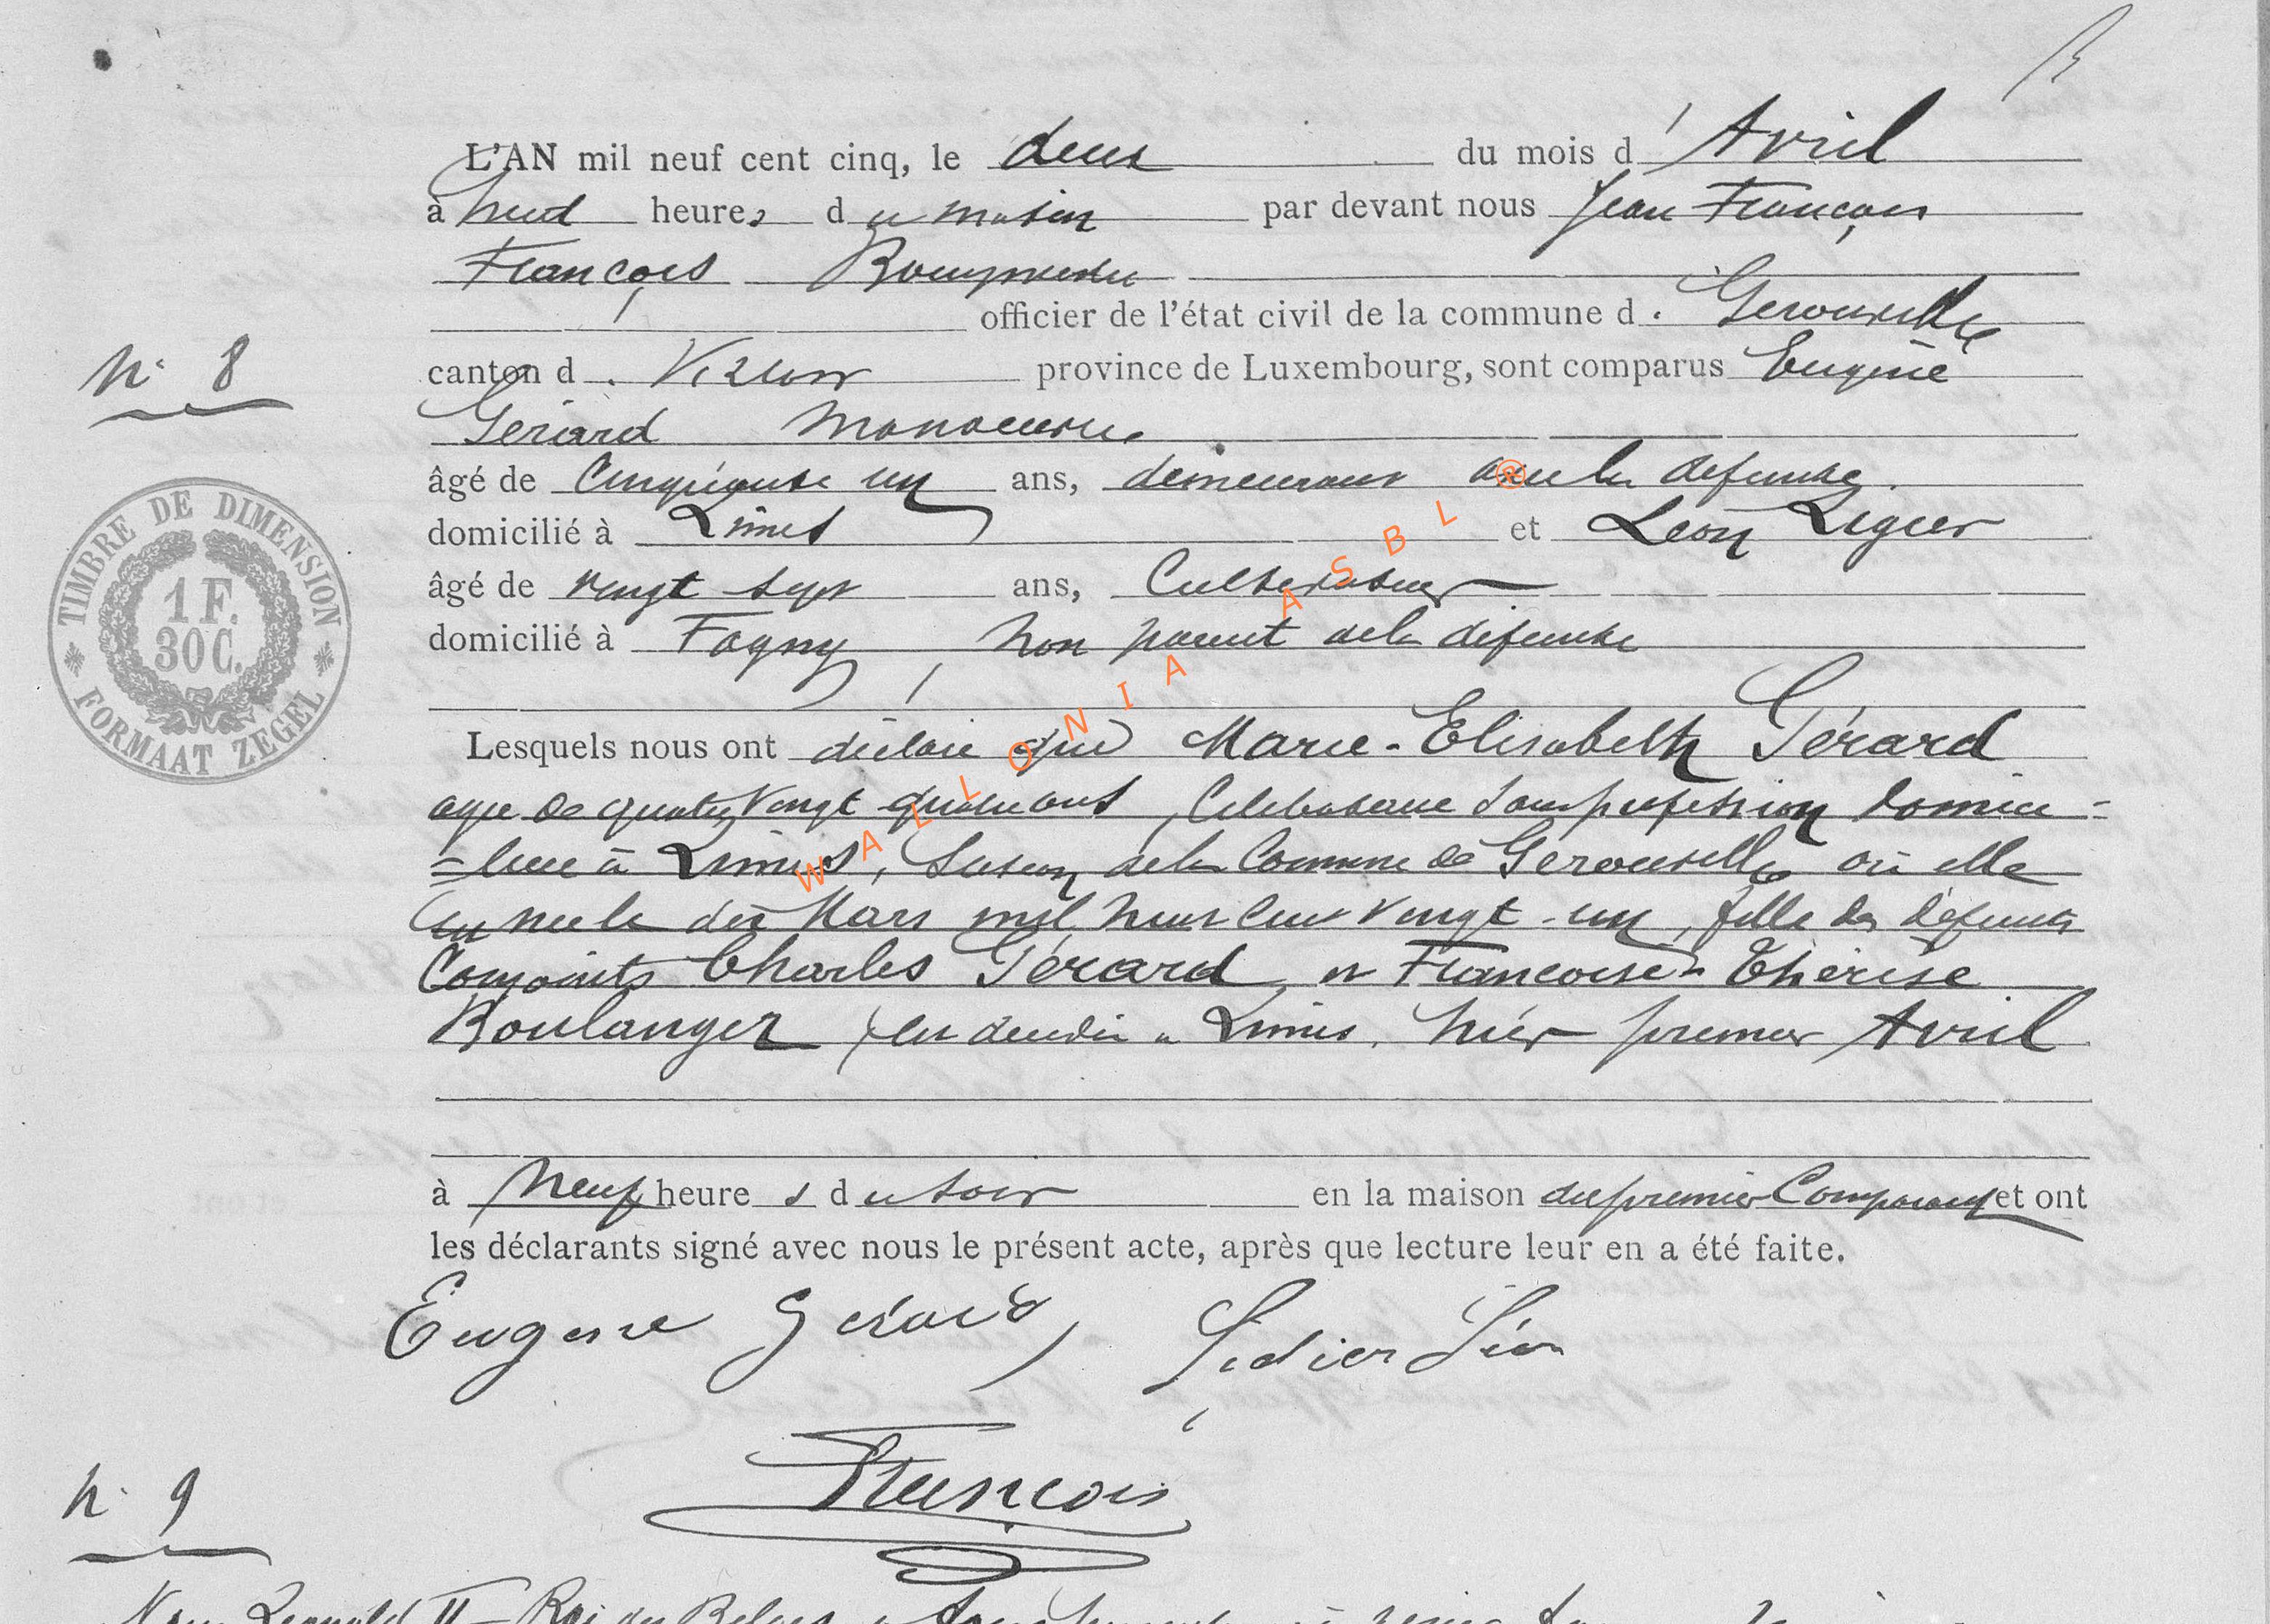 L'AN mil neuf cent cinq, le deux du mois d' Avril
à heures du matin par devant nous Jean François
François
officier de l'état civil de la commune d. Gerouville
N° 8
canton d. Virton province de Luxembourg, sont comparus Eugène
Gérard Manoeuvre
âgé de Cinquante un ans, demeurant avec la défunte
domicilié à Limes et Léon
âgé de vingt sept ans, Cultivateur
domicilié à Fagny, non parent de la défunte
TIMBRE DE DIMENSION
1 F.
30 C.
FORMAAT ZEGEL
Lesquels nous ont déclaré que Marie-Elisabeth Gérard
agée de quatre Vingt quatre ans, Célibataire sans profession domici=
=liée à Limes, Section de la Commune de Gerouville où elle
est née le dix Mars mil huit cent vingt-un, fille des défunts
Conjoints Charles Gérard et Françoise-Thérèse
Boulanger, est décédée à Limes, hier premier Avril
à Neuf heures du soir en la maison du premier Comparant et ont
les déclarants signé avec nous le présent acte, après que lecture leur en a été faite.
Eugene Gerard, Léon
François
N° 9
Nous Leopold II Roi des Belges
WALLONIA ASBL ®